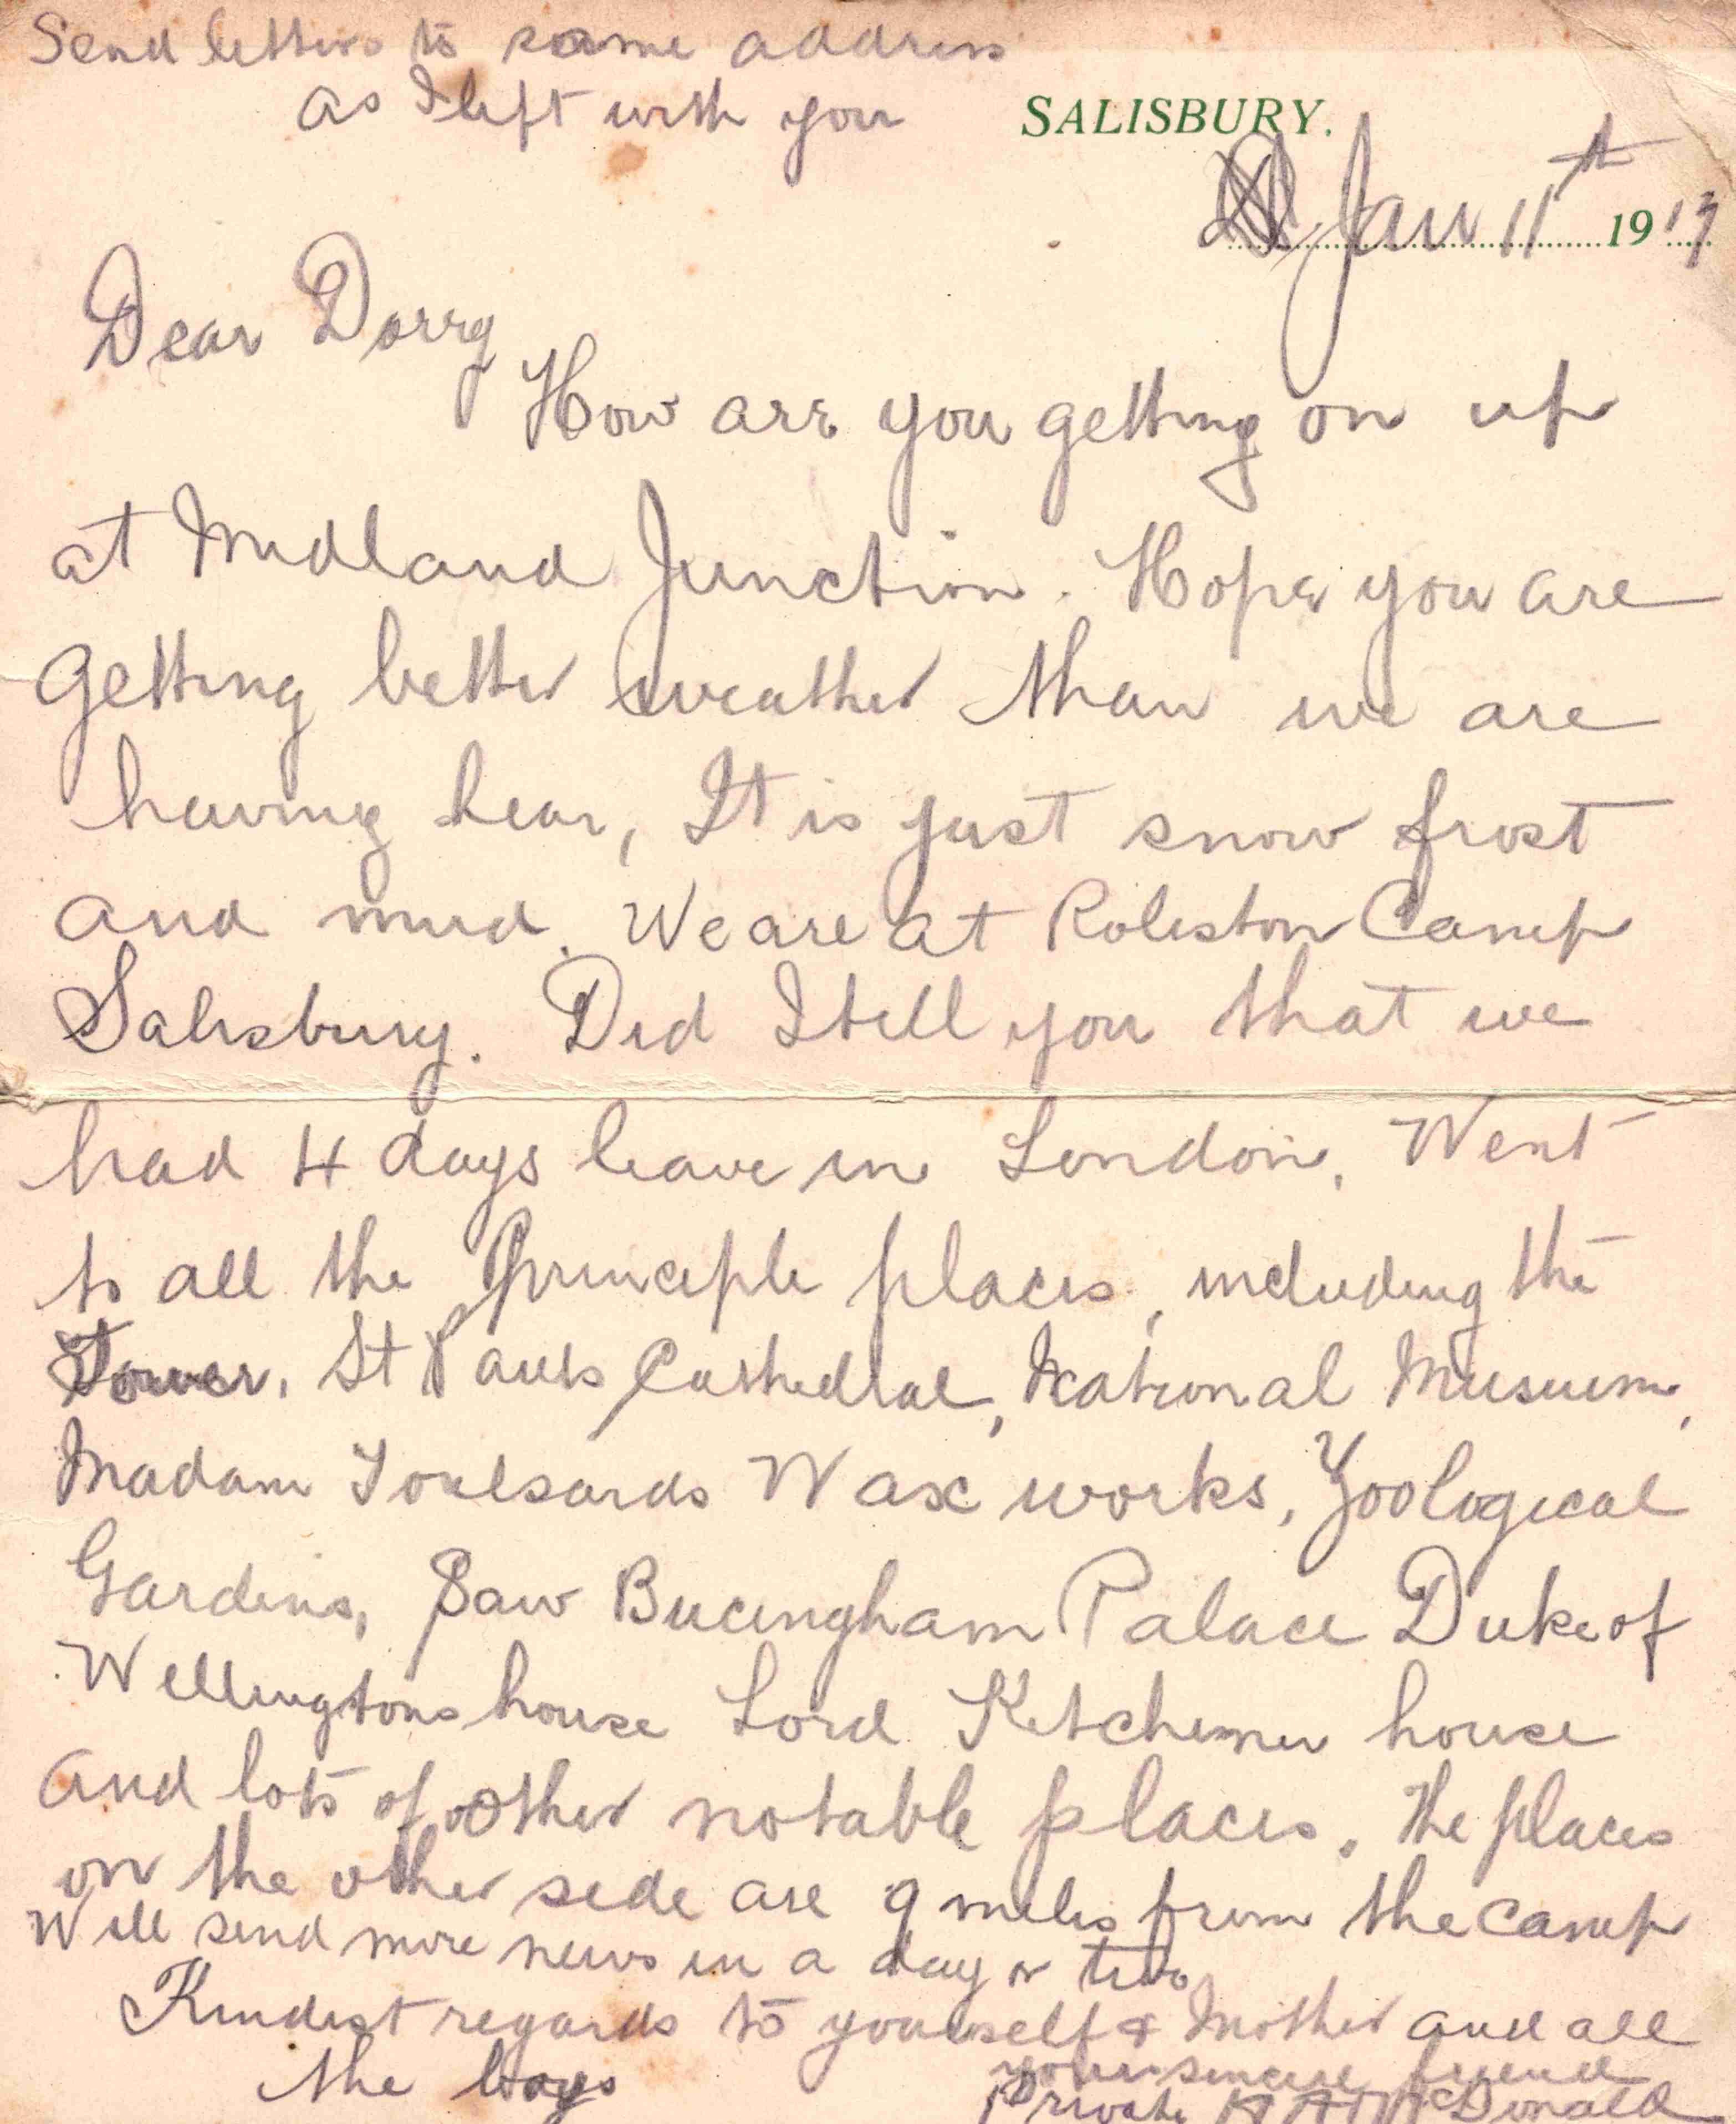 Send letters to same address
as I left with you
SALISBURY.
Jan 11th 1917
Dear Dorry
How are you getting on up
at Midland Junction. Hope you are
getting better weather than we are
having hear, It is just snow frost
and mud. We are at Roleston Camp
Salisbury. Did I tell you that we
had 4 days leave in London, Went
to all the Principle places, including the
Tower, St Pauls Cathedral, National Museum,
Madam Toulsards Wax works, Zoological
Gardens, Saw Bucingham Palace Duke of
Wellingtons house Lord Kitchener house
and lots of other notable places. The places
on the other side are 9 miles from the camp
Will send more news in a day or two
Kindest regards to yourself & Mother and all
the boys
your sincere friend
Private McDonald